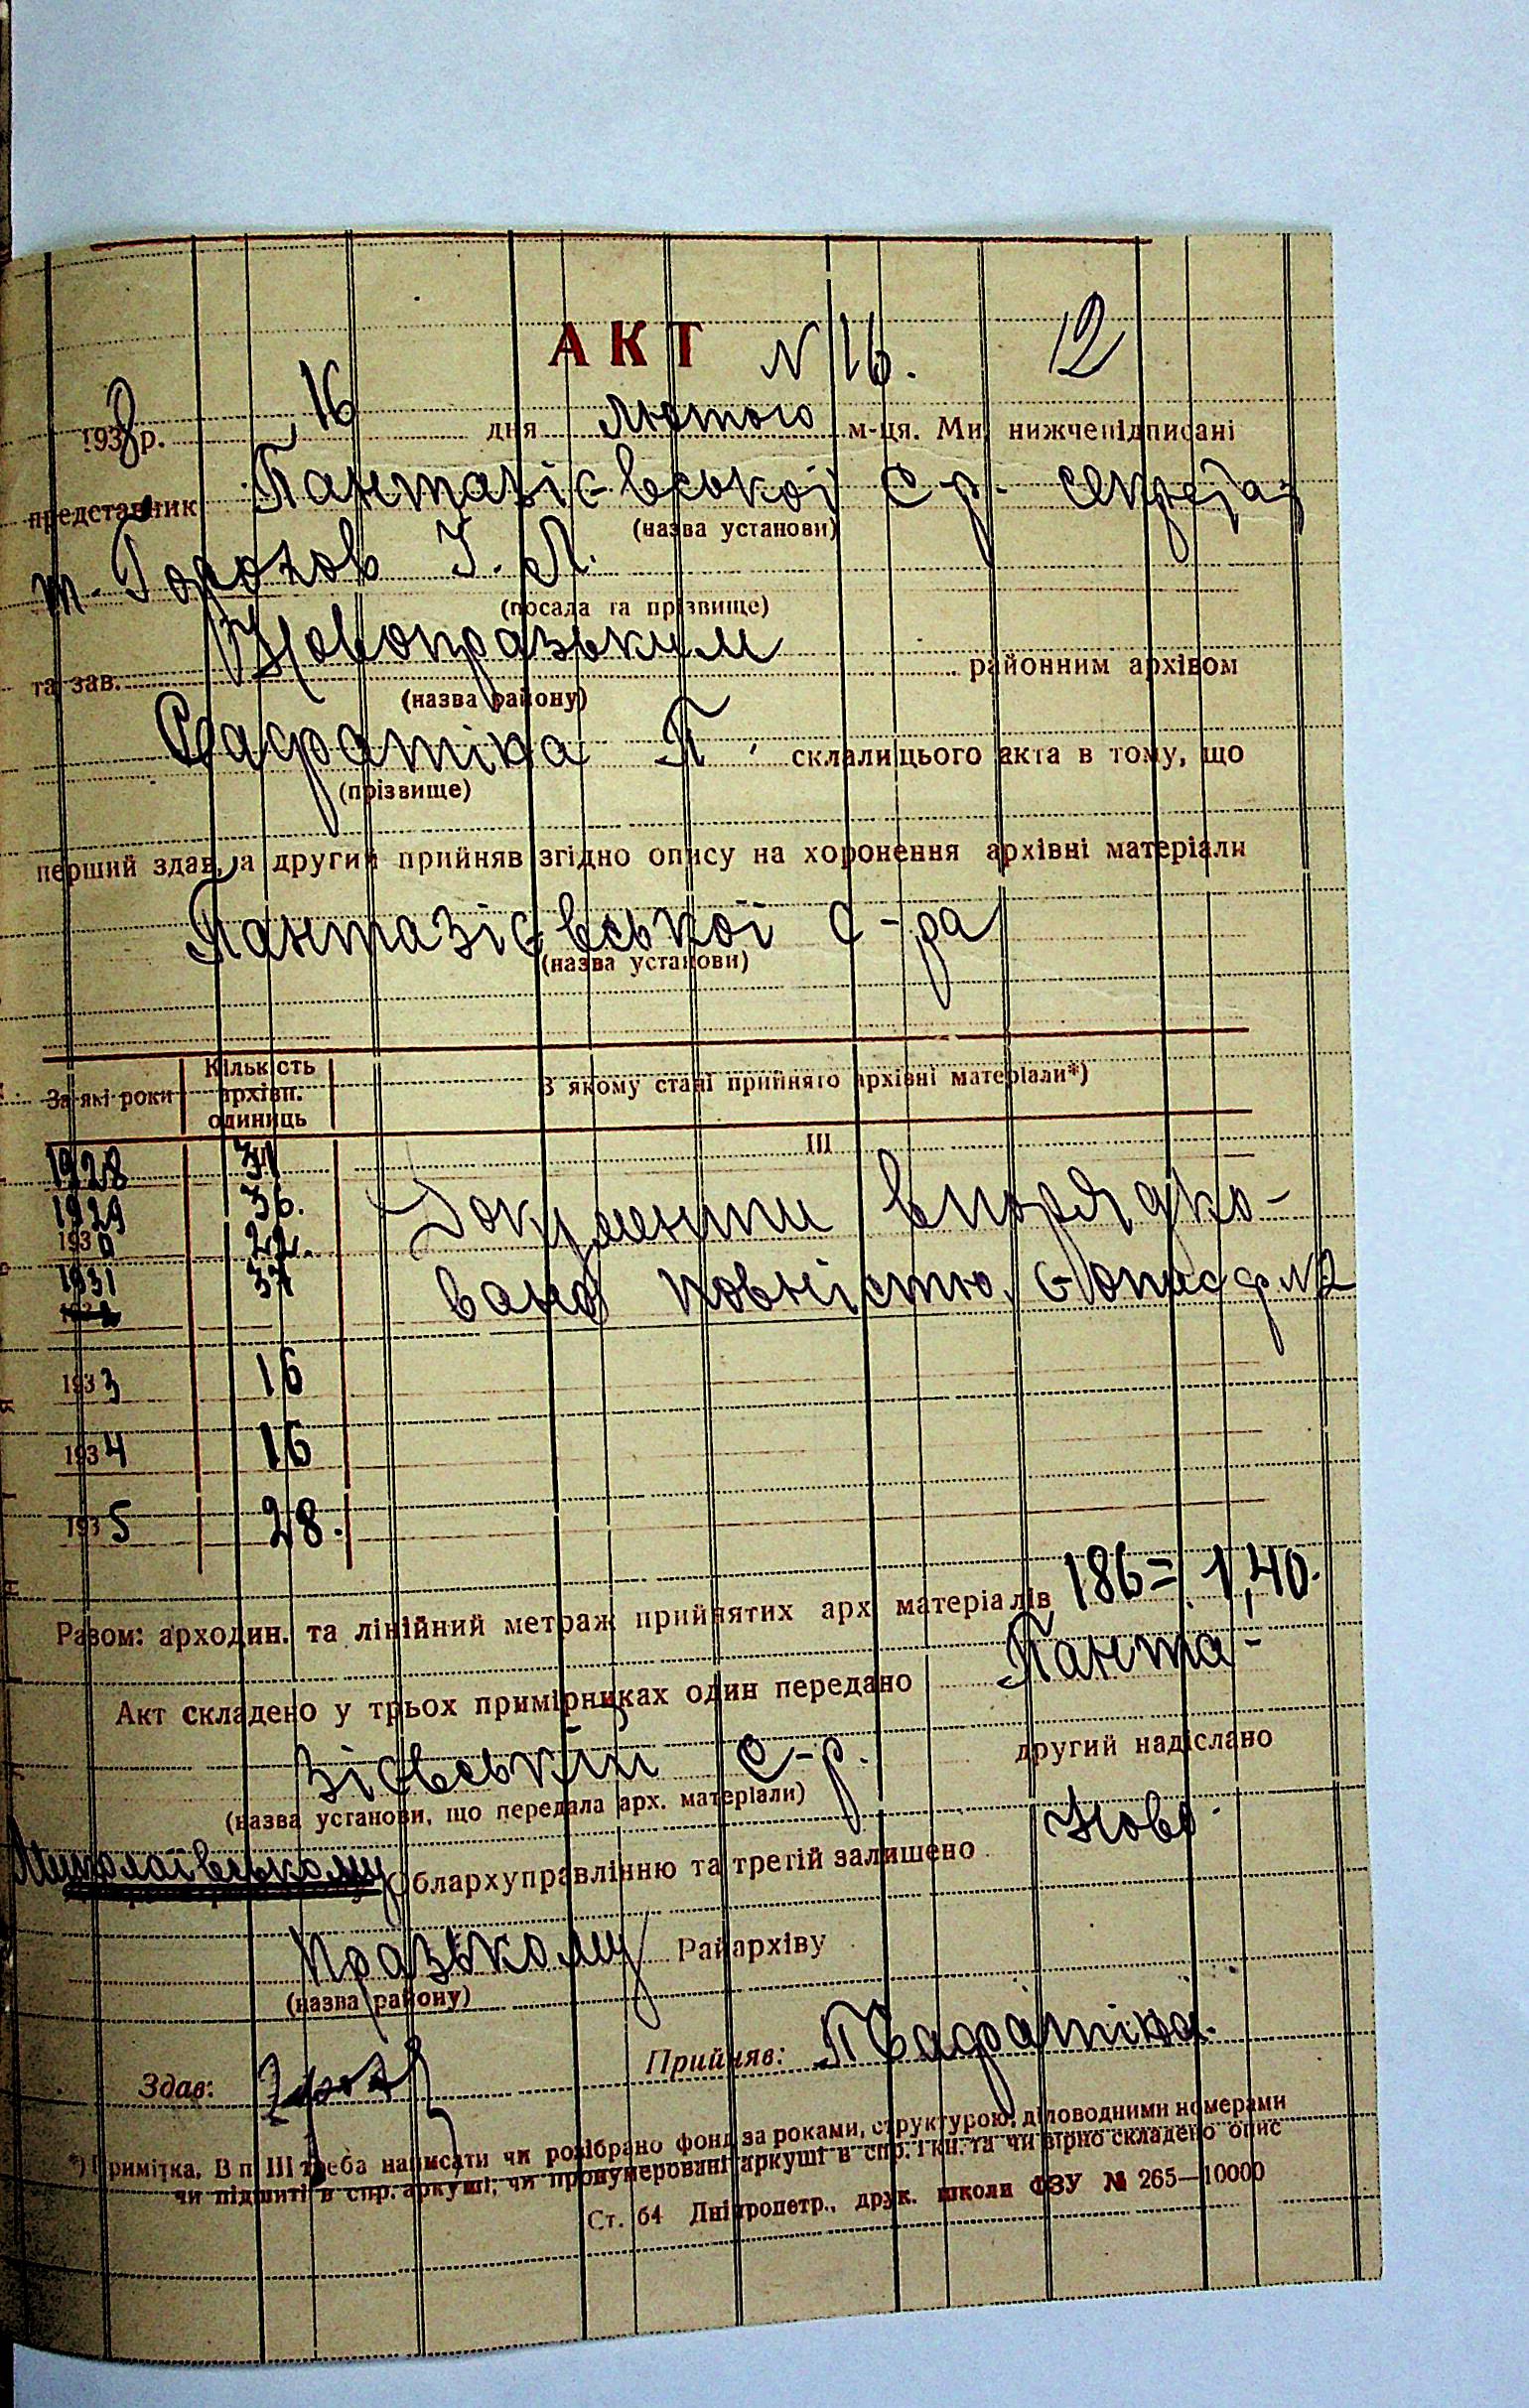 АКТ N 16. 12
1938 р. 16 дня лютого м-ця. Ми нижчепідписані
представник Пантазієвської с-р.
(назва установи)
т. Горохов І. Л.
(посада та прізвище)
та зав. Новопразьким районним архівом
(назва району)
П. склали цього акта в тому, що
(прізвище)
перший здав, а другий прийняв згідно опису на хоронення архівні матеріали
Пантазієвської с-ра
(назва установи)
За які роки Кількість архівн. одиниць В якому стані прийнято архівні матеріали*)
III
1928 31
1929 36. Документи впорядко-
1930 22.
1931 37 вано повністю, є опис ф. №2
1933 16
1934 16
1935 28.
Разом: арходин. та лінійний метраж прийнятих арх матеріалів 186=1,40.
Акт складено у трьох примірниках один передано Панта-
зієвській с-р. другий надіслано
(назва установи, що передала арх. матеріали)
Миколаївському Облархуправлінню та третій залишено Ново-
празькому Райархіву
(назва району)
Здав: Прийняв:
*) Примітка. В п. III треба написати чи розібрано фонд за роками, структурою, діловодними номерами
чи підшиті в спр. аркуші, чи пронумеровані аркуші в спр. і кн. та чи вірно складено опис
Ст. 64 Дніпропетр., друк. школи ФЗУ № 265—10000